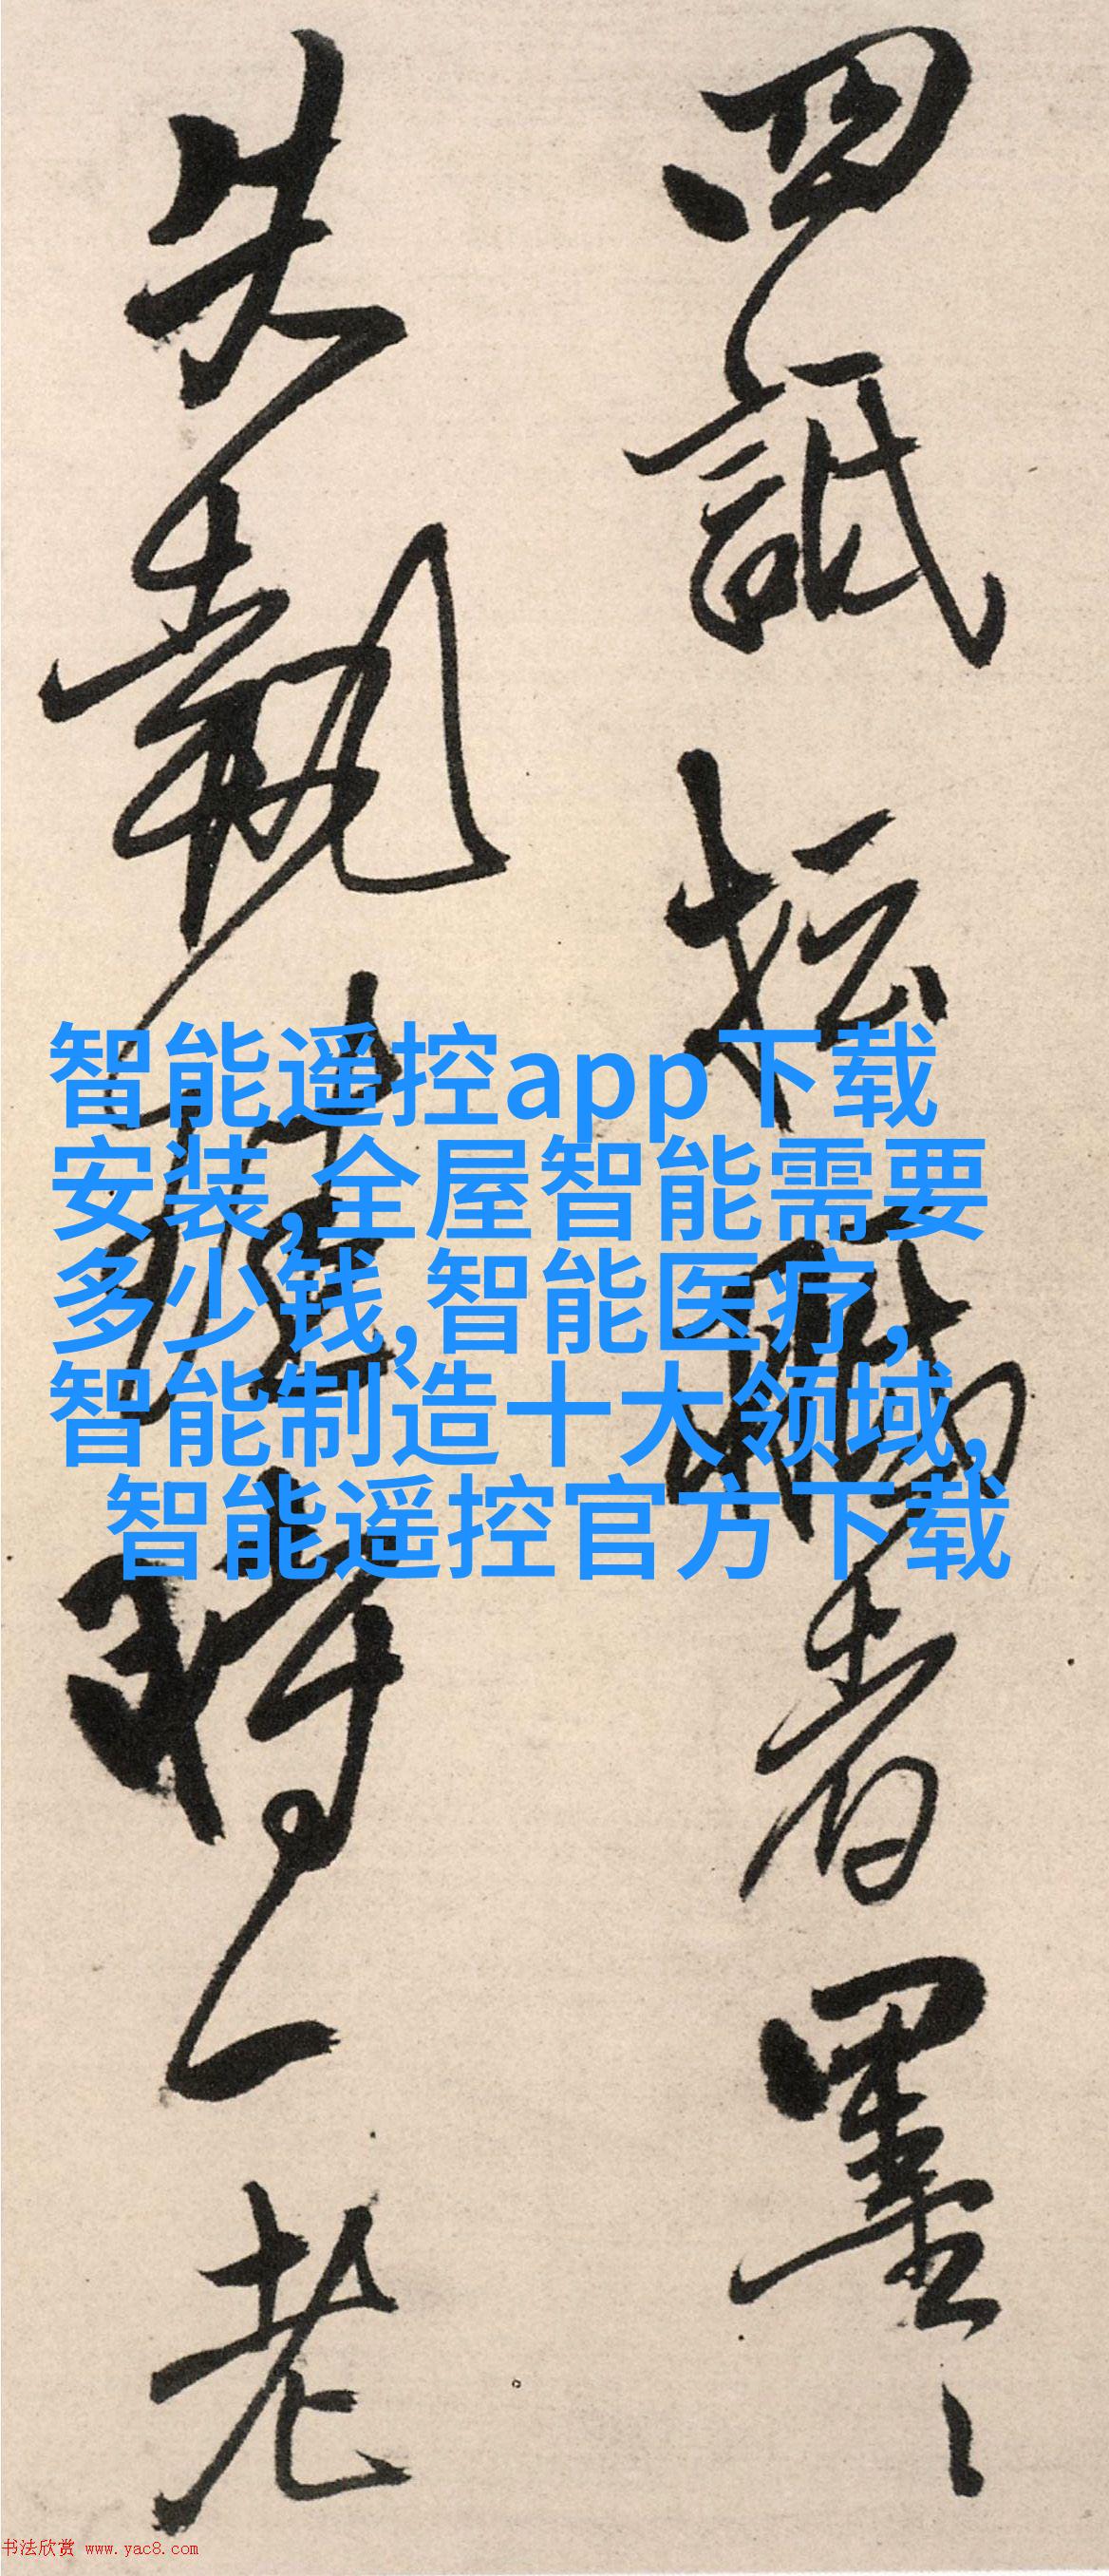 四詆抎職者墨〻
失執
将一老
智能遥控app下载
安装,全屋智能需要
多少钱,智能医疗,
智能制造十大领域,
智能遥控官方下载
书法欣赏 www.yac8.com